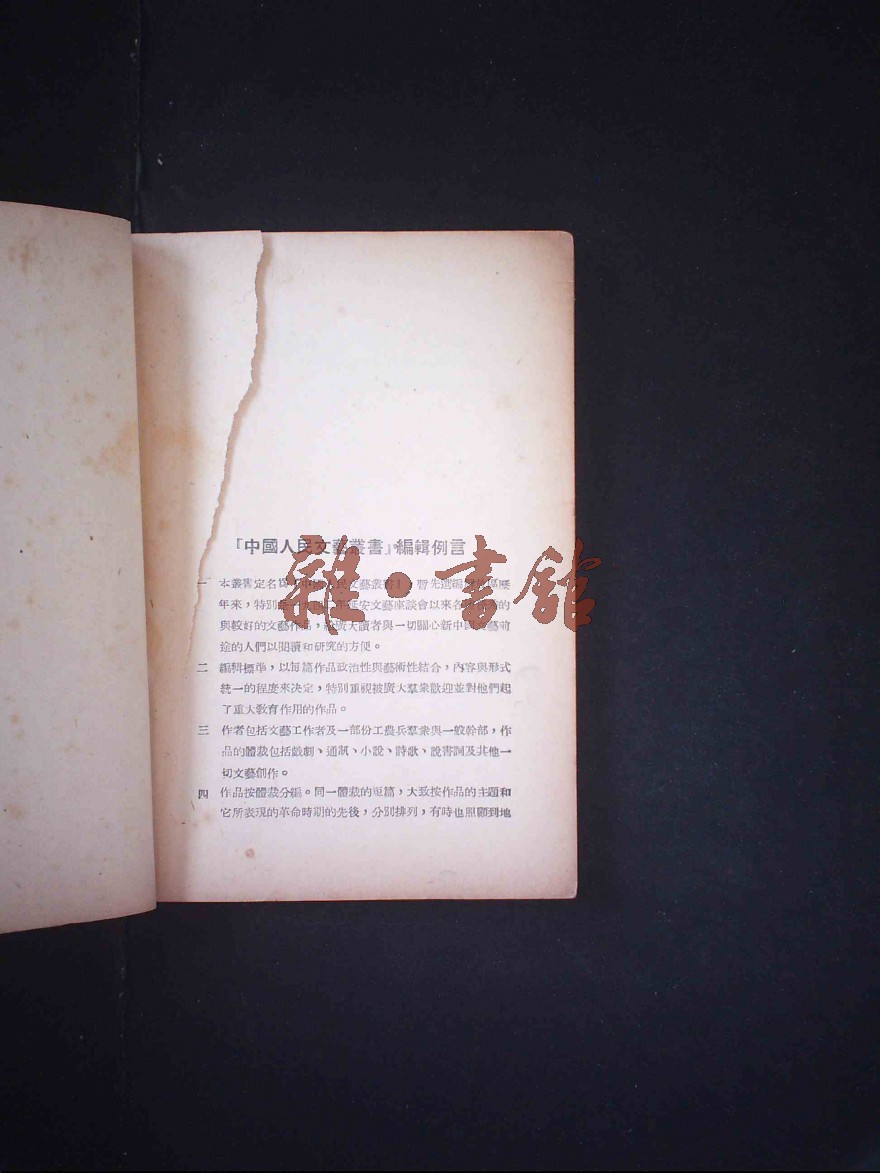 『中國人民文藝叢書』編輯例言
雜·書館
一 本叢書定名爲『中國人民文藝叢書』,暫先選編解放區歷
年來,特別是一九四二年延安文藝座談會以來各種優秀的
與較好的文藝作品,給廣大讀者與一切關心新中國文藝前
途的人們以閱讀和研究的方便。
二 編輯標準,以每篇作品政治性與藝術性結合,內容與形式
統一的程度來決定,特別重視被廣大羣衆歡迎並對他們起
了重大教育作用的作品。
三 作者包括文藝工作者及一部份工農兵羣衆與一般幹部,作
品的體裁包括戲劇、通訊、小說、詩歌、說書詞及其他一
切文藝創作。
四 作品按體裁分編。同一體裁的短篇,大致按作品的主題和
它所表現的革命時期的先後,分別排列,有時也照顧到地